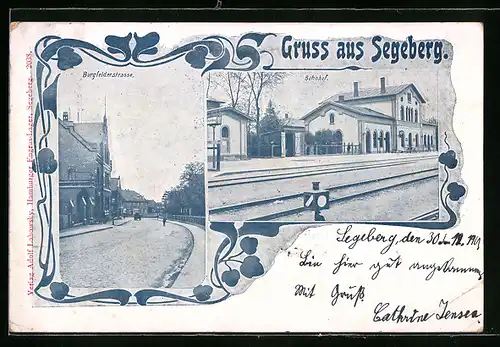 Gruss aus Segeberg.
Burgfelderstrasse.
Bahnhof.
Verlag Adolf Labowsky, Hamburger Engros-Lager, Segeberg. 2038.
Segeberg, den 30.
Bin hier gut angekommen
Mit Gruß
Cathrine Jensen